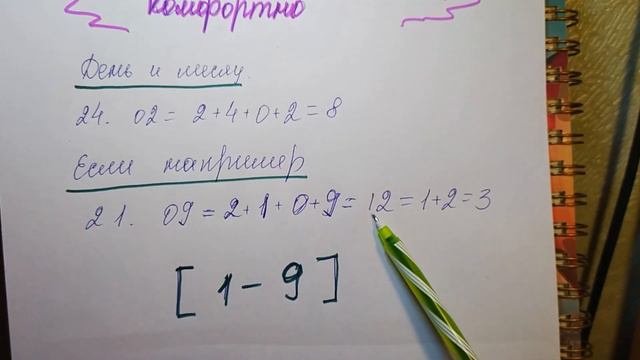 комфортно
День и месяц.
24. 02 = 2+4+0+2=8
Если например
21. 09 = 2+1+0+9=12=1+2=3
[1-9]